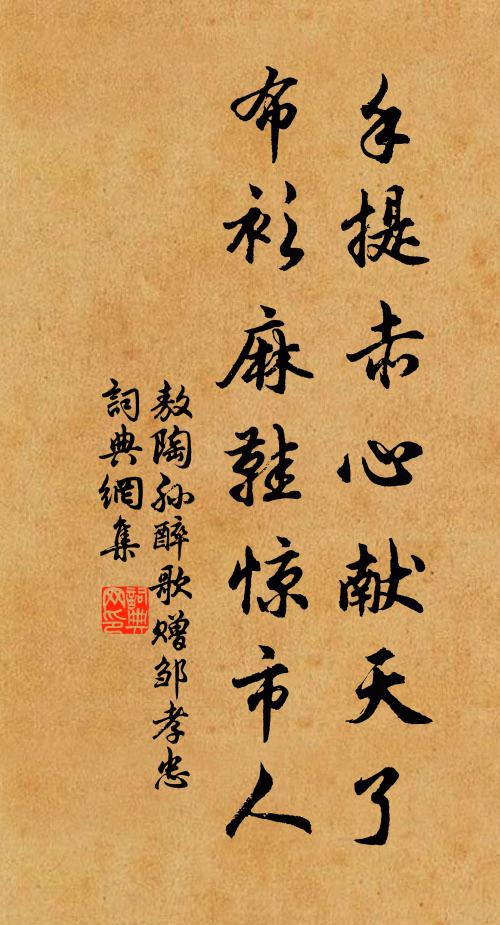 手提赤心献天了
布衫麻鞋惊市人
敖陶孙醉歌赠邹孝忠
詞典網集
詞典
网印